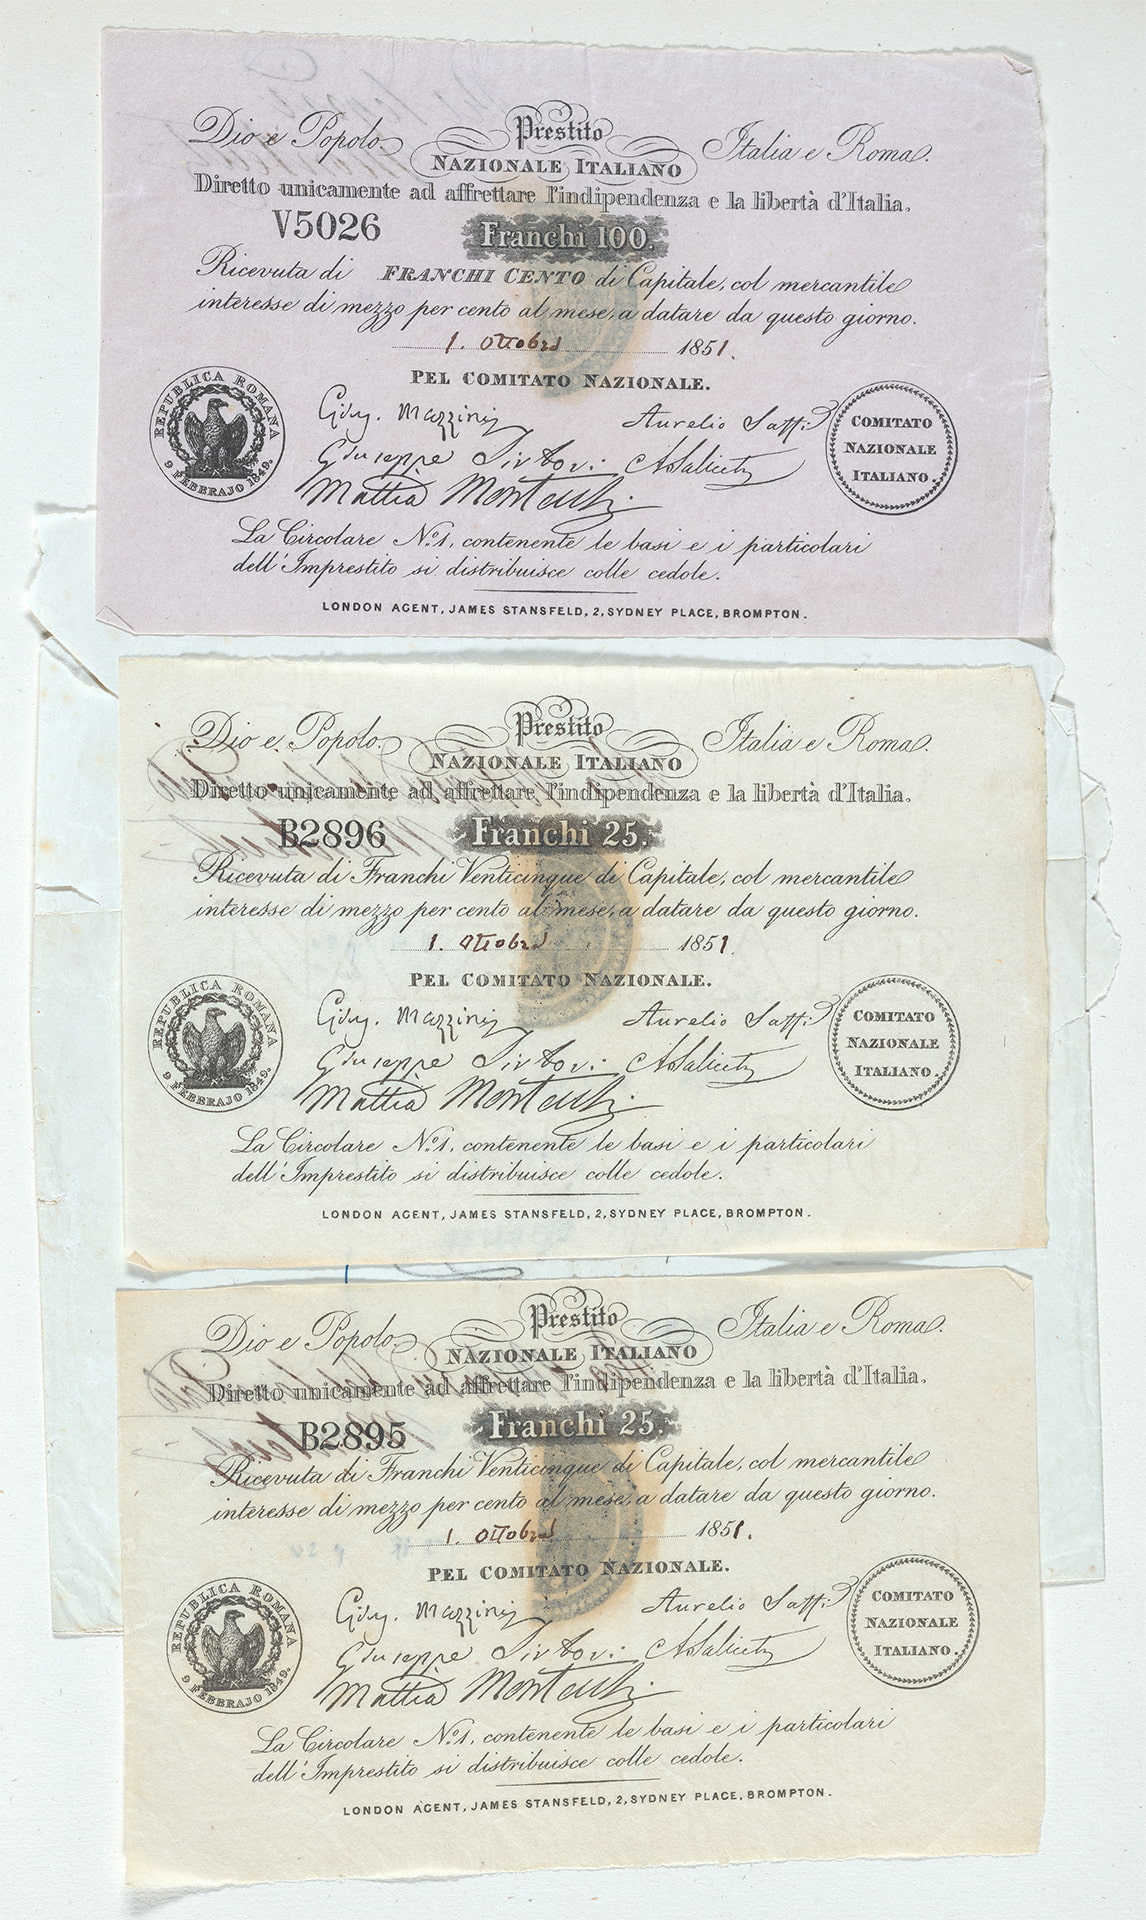 Dio e Popolo.
Prestito
Italia e Roma.
NAZIONALE ITALIANO
Diretto unicamente ad affrettare l'indipendenza e la libertà d'Italia.
V5026
Franchi 100.
Ricevuta di FRANCHI CENTO di Capitale, col mercantile
interesse di mezzo per cento al mese, a datare da questo giorno.
1. Ottobre 1851.
PEL COMITATO NAZIONALE.
REPUBLICA ROMANA
9 FEBBRAJO 1849.
Gius. Mazzini
Aurelio Saffi
COMITATO
NAZIONALE
ITALIANO.
Giuseppe Sirtori
Mattia Montecchi
La Circolare No. 1, contenente le basi e i particolari
dell'Imprestito si distribuisce colle cedole.
LONDON AGENT, JAMES STANSFELD, 2, SYDNEY PLACE, BROMPTON.
Dio e Popolo.
Prestito
Italia e Roma.
NAZIONALE ITALIANO
Diretto unicamente ad affrettare l'indipendenza e la libertà d'Italia.
B2896
Franchi 25.
Ricevuta di Franchi Venticinque di Capitale, col mercantile
interesse di mezzo per cento al mese, a datare da questo giorno.
1. Ottobre 1851.
PEL COMITATO NAZIONALE.
REPUBLICA ROMANA
9 FEBBRAJO 1849.
Gius. Mazzini
Aurelio Saffi
COMITATO
NAZIONALE
ITALIANO.
Giuseppe Sirtori
Mattia Montecchi
La Circolare No. 1, contenente le basi e i particolari
dell'Imprestito si distribuisce colle cedole.
LONDON AGENT, JAMES STANSFELD, 2, SYDNEY PLACE, BROMPTON.
Dio e Popolo.
Prestito
Italia e Roma.
NAZIONALE ITALIANO
Diretto unicamente ad affrettare l'indipendenza e la libertà d'Italia.
B2895
Franchi 25.
Ricevuta di Franchi Venticinque di Capitale, col mercantile
interesse di mezzo per cento al mese, a datare da questo giorno.
1. Ottobre 1851.
PEL COMITATO NAZIONALE.
REPUBLICA ROMANA
9 FEBBRAJO 1849.
Gius. Mazzini
Aurelio Saffi
COMITATO
NAZIONALE
ITALIANO.
Giuseppe Sirtori
Mattia Montecchi
La Circolare No. 1, contenente le basi e i particolari
dell'Imprestito si distribuisce colle cedole.
LONDON AGENT, JAMES STANSFELD, 2, SYDNEY PLACE, BROMPTON.